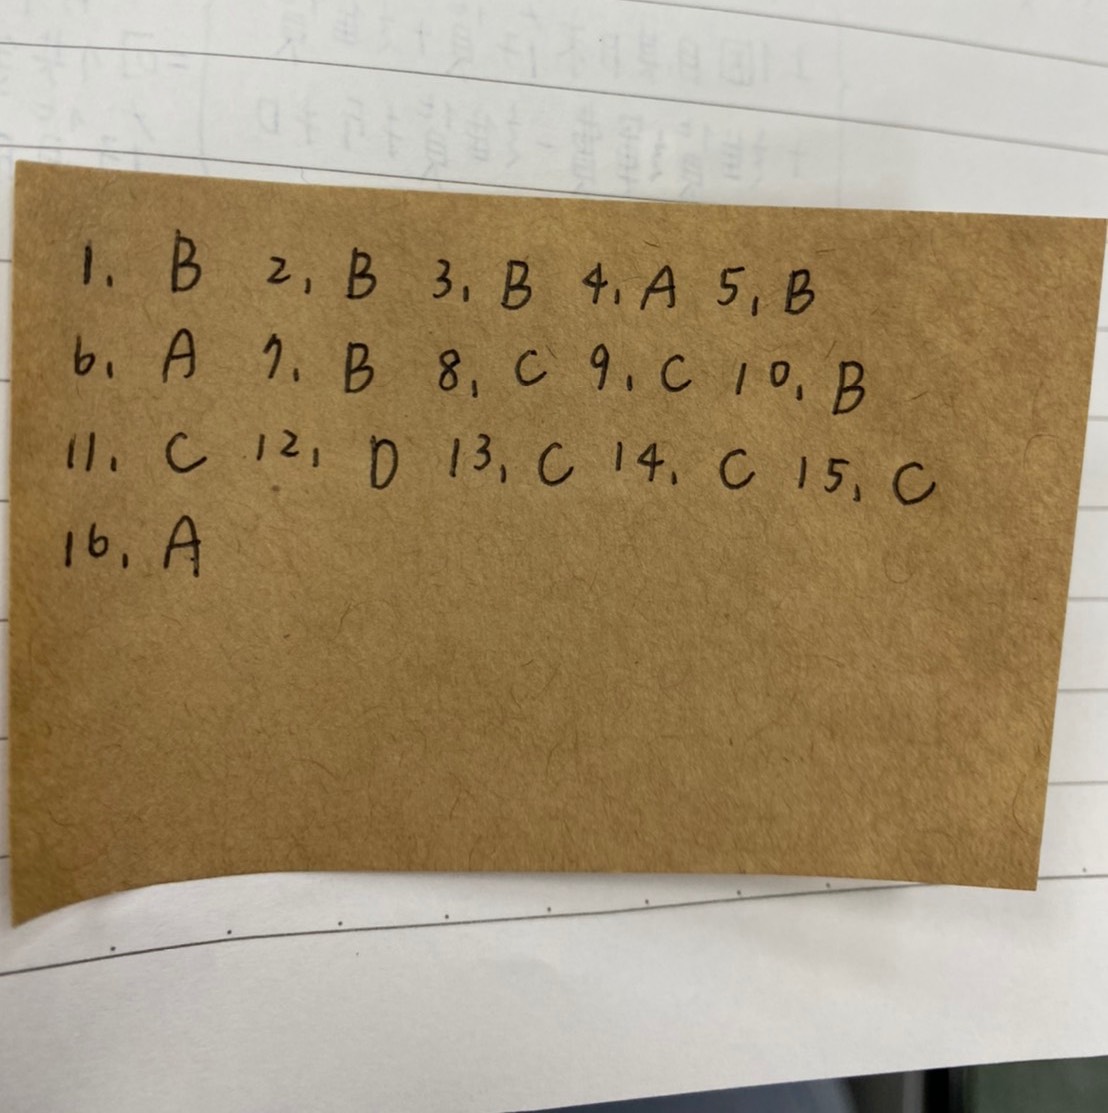 1. B 2, B 3, B 4, A 5, B
6, A 7. B 8, C 9, C 10, B
11. C 12, D 13, C 14, C 15, C
16, A